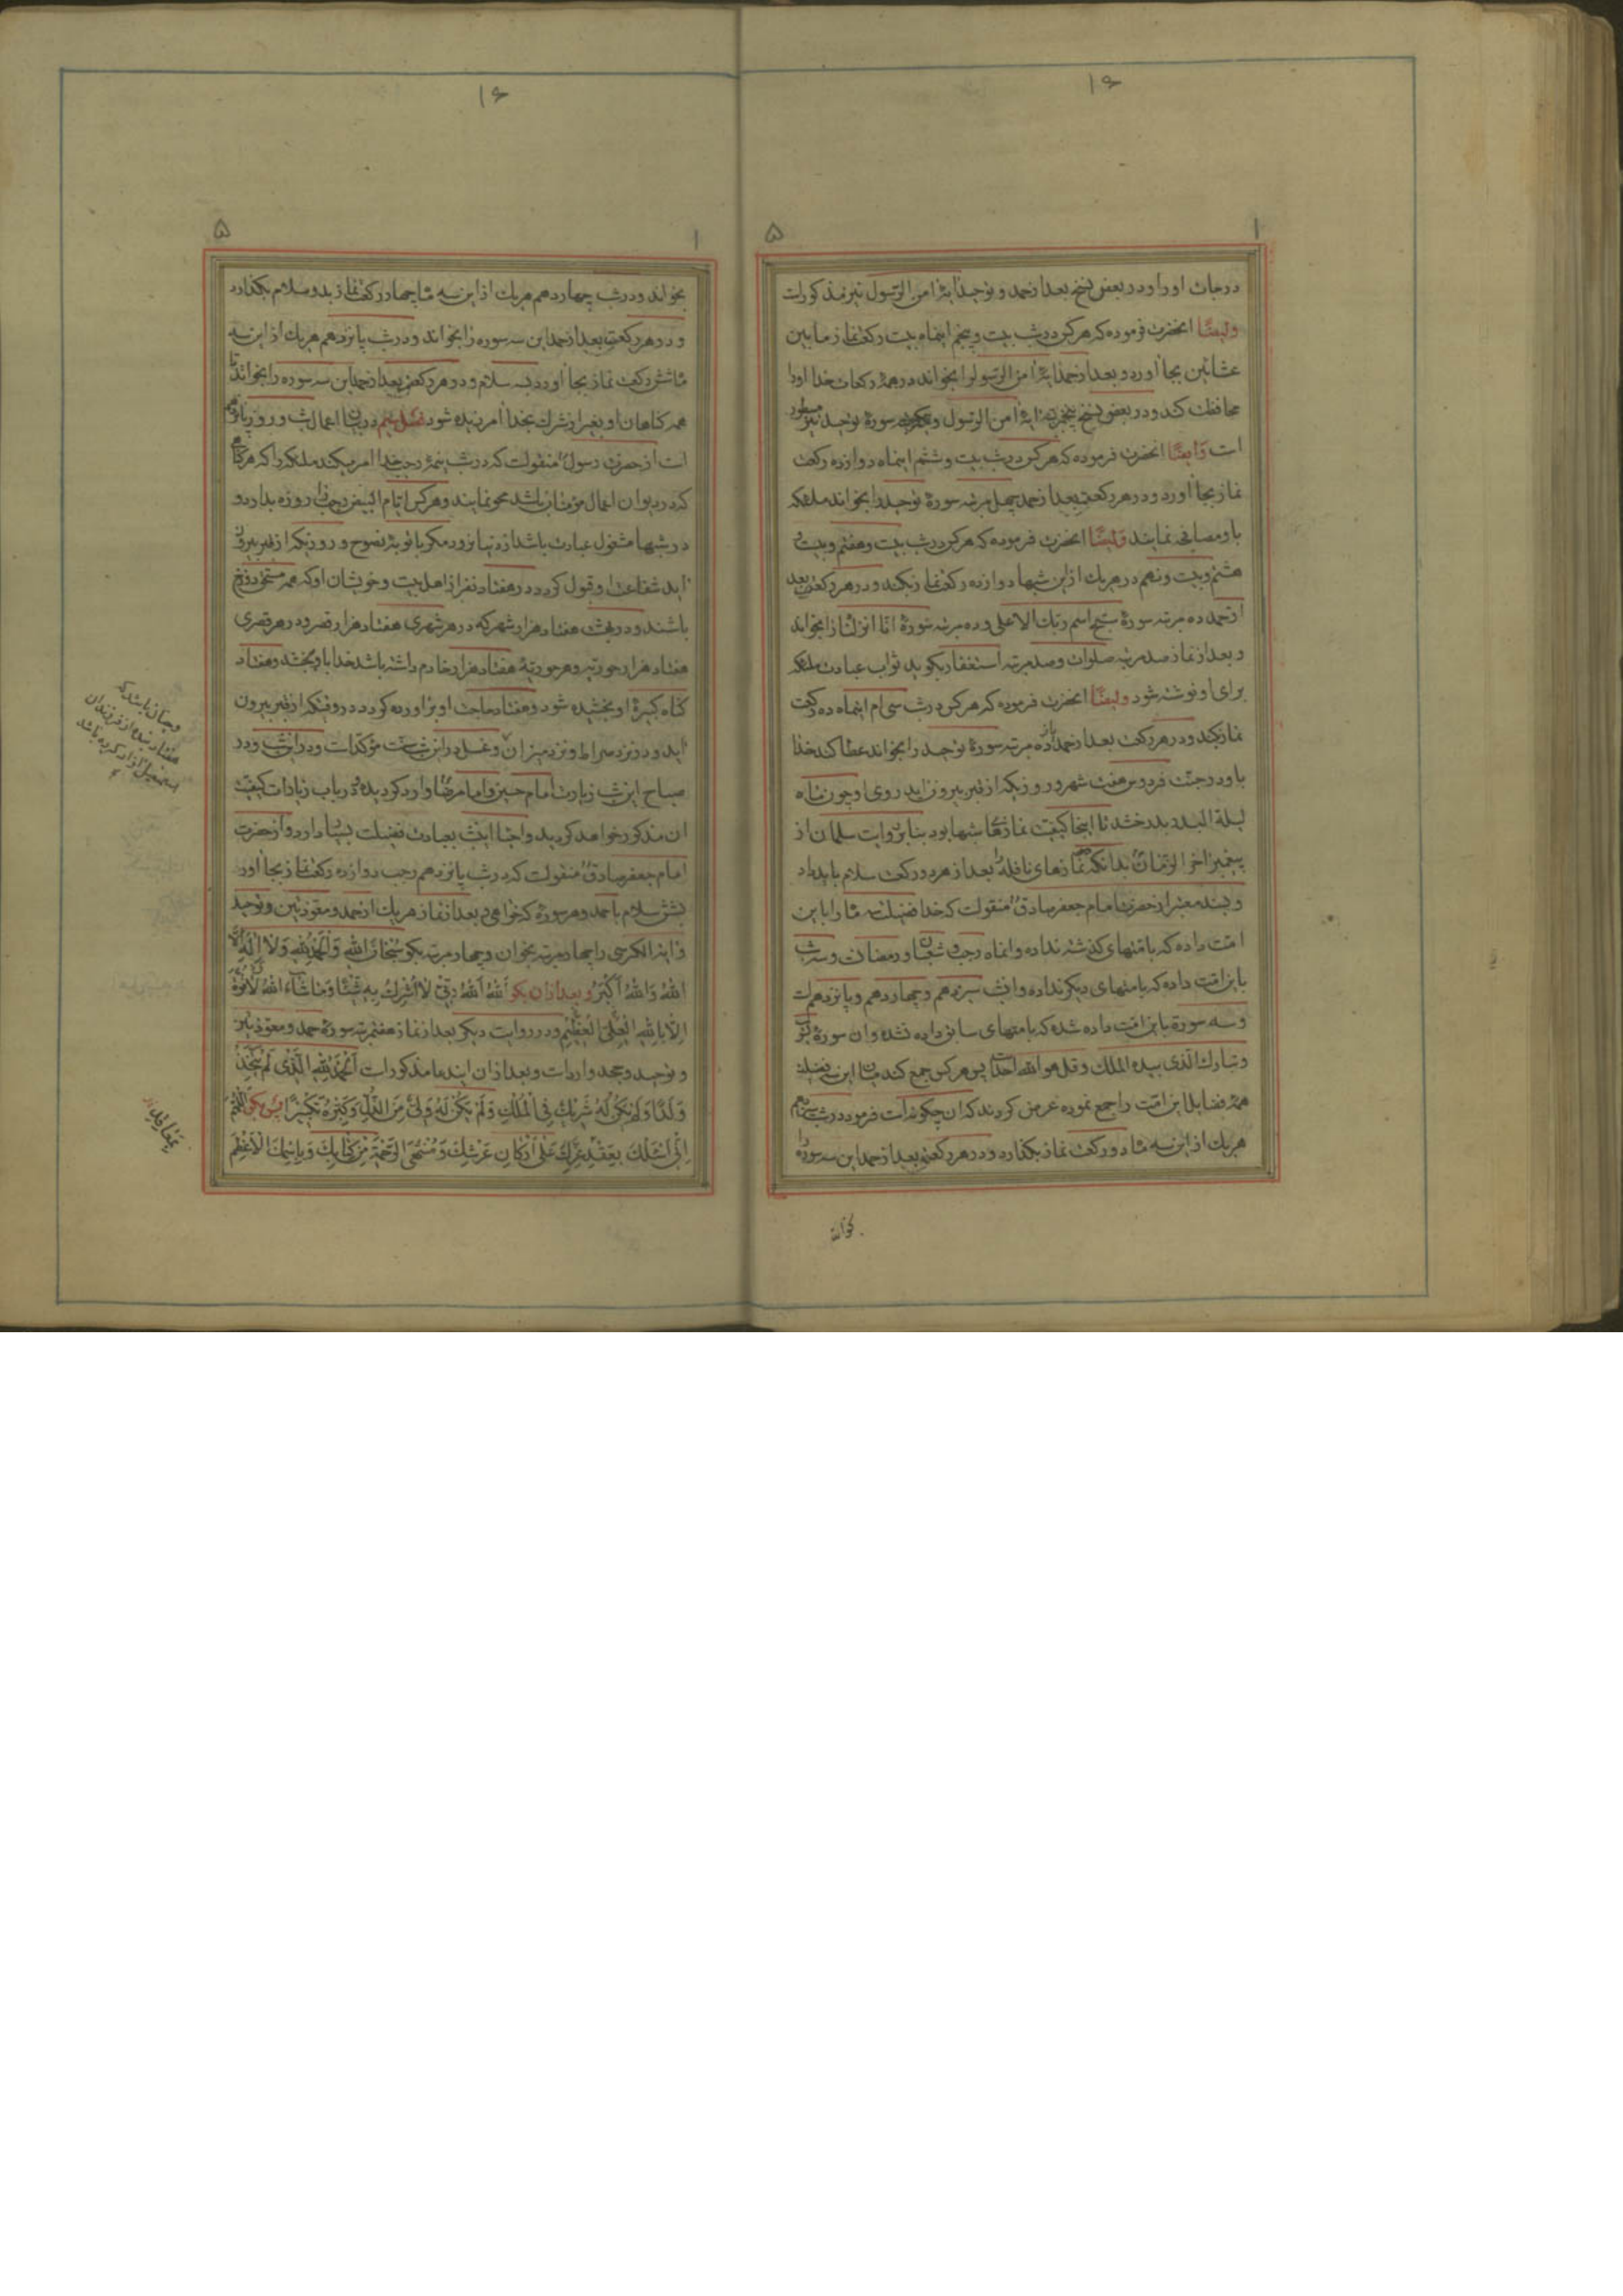 ۱۶
۱
۵
درجات او را و در بعض نسخ بعد از حمد و توحید آیهٔ امن الرسول نیز مذکورات
وایضًا انحضرت فرموده که هرکس در شب بیت و پنجم اینماه بیت رکعت نماز ما بین
عشائین بجا آورد و بعد از حمد آیهٔ امن الرسول را بخواند در همهٔ رکعات خدا او را
محافظت کند و در بعض نسخ پنجمرتبه آیهٔ امن الرسول و یکمرتبه سورهٔ توحید نیز مسطور
است وایضًا انحضرت فرموده که هرکس در شب بیت و ششم اینماه دوازده رکعت
نماز بجا آورد و در هر رکعت بعد از حمد چهل مرتبه سورهٔ توحید را بخواند ملئکه
با او مصافحه نمایند وایضًا انحضرت فرموده که هرکس در شب بیت و هفتم و بیت و
هشتم و بیت و نهم در هر یک از این شبها دوازده رکعت نماز بکند و در هر رکعت بعد
از حمد ده مرتبه سورهٔ سبح اسم ربک الاعلی و ده مرتبه سورهٔ انا انزلناه را بخواند
و بعد از نماز صد مرتبه صلوات و صد مرتبه استغفار بکوید ثواب عبادت ملئکه
برای او نوشته شود وایضًا انحضرت فرموده که هرکس در شب سی ام اینماه ده رکعت
نماز بکند و در هر رکعت بعد از حمد یازده مرتبه سورهٔ توحید را بخواند عطا کند خدا
باو در جنت فردوس هفت شهر و روزیکه از قبر بیرون اید روی او چون ماه
لیلة البدر بدرخشد تا اینجا کیفیت نمازهای شبها بود بنابر روایت سلمان از
پیغمبر اخر الزمان بدانکه نمازهای نافله را بعد از هر دو رکعت سلام باید داد
و بسند معتبر از حضرت امام جعفر صادق منقولست که خدا فضیلت سه ماه را باین
امت داده که بامتهای کذشته نداده و انماه رجب و شعبان و رمضان و سه شب
باین امت داده که بامتهای دیکر نداده و ان شب سیزدهم و چهاردهم و پانزدهم است
و سه سوره باین امت داده شده که بامتهای سابق داده نشده و ان سورهٔ یس
و تبارک الذی بیده الملک و قل هو الله احد است پس هرکس جمع کند میان این سه فضیلت
همهٔ فضایل این امت را جمع نموده عرض کردند که ان چکونه است فرمود در شب سیزدهم
هر یک از این سه ماه دو رکعت نماز بکذارد و در هر رکعتی بعد از حمد این سه سوره را
بخواند
۱۶
۱
۵
بخواند و در شب چهاردهم هر یک از این سه ماه چهار رکعت نماز بدو سلام بکذارد
و در هر رکعتی بعد از حمد این سه سوره را بخواند و در شب پانزدهم هر یک از این سه
ماه شش رکعت نماز بجا آورد بسه سلام و در هر رکعتی بعد از حمد این سه سوره را بخواند تا
همه کناهان او بغیر از شرک بخدا امرزیده شود فصل پنجم در بیان اعمال شب و روز پانزدهم
است از حضرت رسول منقولست که در شب نیمهٔ رجب خدا امر میکند ملئکه را که هر کناهی
که در دیوان اعمال مؤمنان باشد محو نمایند و هرکس ایام البیض رجب را روزه بدارد و
در شبها مشغول عبادت باشد از دنیا نرود مکر با توبهٔ نصوح و روزیکه از قبر بیرون
اید شفاعت او قبول کردد در هفتاد نفر از اهل بیت و خویشان او که همه مستحق دوزخ
باشند و در بهشت هفتاد هزار شهر که در هر شهری هفتاد هزار قصر و در هر قصری
هفتاد هزار حوریه و هر حوریهٔ هفتاد هزار خادم داشته باشد خدا باو بخشد و هفتاد
کناه کبیرهٔ او بخشیده شود و هفتاد حاجت او براورده کردد در وقتیکه از قبر بیرون
اید و در نزد صراط و نزد میزان و غسل در این شب سنت مؤکدات و در این شب و در
صباح این شب زیارت امام حسین و امام رضا وارد کردیده و در باب زیارات کیفیت
ان مذکور خواهد کردید و احیا اینشب بعبادت فضیلت بسیار دارد و از حضرت
امام جعفر صادق منقولست که در شب پانزدهم رجب دوازده رکعت نماز بجا آور
بشش سلام با حمد و هر سوره که خواهی و بعد از نماز هر یک از حمد و معوذتین و توحید
و ایة الکرسی را چهار مرتبه بخوان و چهار مرتبه بکو سُبْحَانَ اللّٰهِ وَالْحَمْدُ لِلّٰهِ وَلَا اِلٰهَ اِلَّا
اللّٰهُ وَاللّٰهُ اَکْبَرُ و بعد از ان بکو اَللّٰهُ اَللّٰهُ رَبِّی لَا اُشْرِکُ بِهِ شَیْئًا وَمَا شَاءَ اللّٰهُ لَا قُوَّةَ
اِلَّا بِاللّٰهِ الْعَلِیِّ الْعَظِیْمِ و در روایت دیکر بعد از نماز هفتمرتبه سورهٔ حمد و معوذتین
و توحید و جحد وارد است و بعد از ان ایندعا مذکورات اَلْحَمْدُ لِلّٰهِ الَّذِی لَمْ یَتَّخِذْ
وَلَدًا وَلَمْ یَکُنْ لَهُ شَرِیْکٌ فِی الْمُلْکِ وَلَمْ یَکُنْ لَهُ وَلِیٌّ مِنَ الذُّلِّ وَکَبِّرْهُ تَکْبِیْرًا پس بکو اَللّٰهُمَّ
اِنِّی اَسْئَلُکَ بِعَقْدِ عِزِّکَ عَلٰی اَرْکَانِ عَرْشِکَ وَمُنْتَهَی الرَّحْمَةِ مِنْ کِتَابِکَ وَبِاسْمِکَ الْاَعْظَمِ
و چنان باشد که
هفتاد بنده از فرزندان
اسمعیل ازاد کرده باشد
بِمَعَاقِدِ